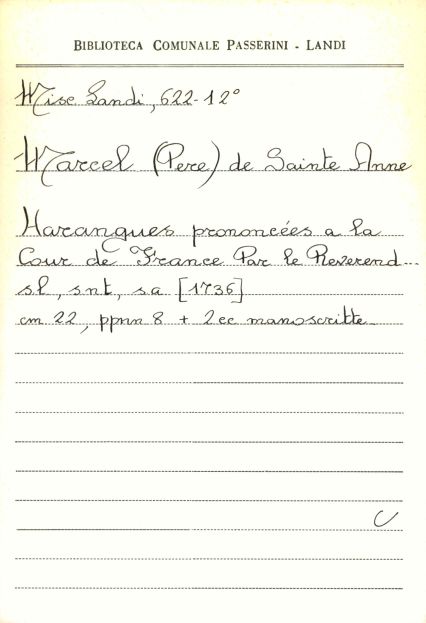 BIBLIOTECA COMUNALE PASSERINI - LANDI
Misc Landi, 622-12°
Marcel (Pere) de Sainte Anne
Harangues prononcées a la
Cour de France Par le Reverend...
sl, snt, sa [1736]
cm 22, ppnn 8 + 2cc manoscritte